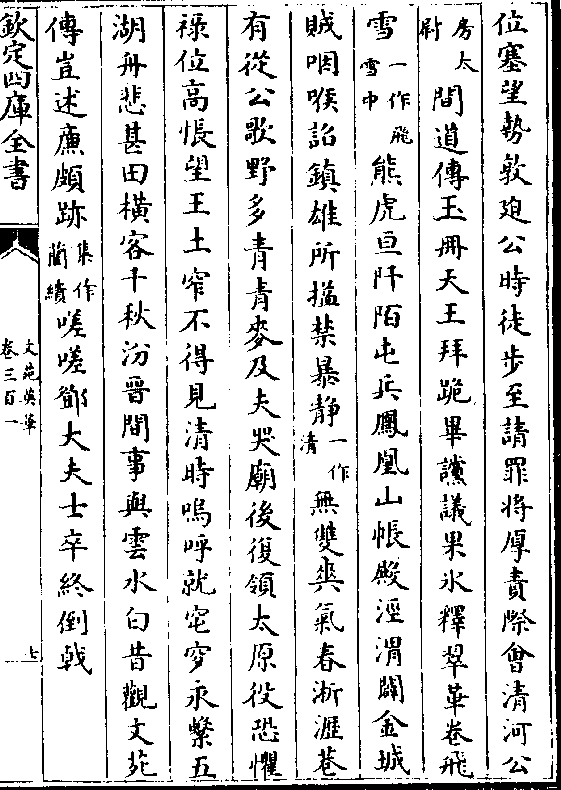 位塞望勢敦迫公時徒步至請罪將厚責際會清河公
房太尉間道傳玉冊天王拜跪畢讜議果冰釋翠華卷飛
雪一作飛雪中熊虎亘阡陌屯兵鳳凰山帳殿涇渭闢金城
賊咽喉詔鎮雄所搤禁暴靜一作清無雙爽氣春淅瀝巷
有從公歌野多青青麥及夫哭廟後復領太原役恐懼
祿位高悵望王土窄不得見清時嗚呼就窀穸永繫五
湖舟悲甚田橫客千秋汾晉間事與雲水白昔觀文苑
傳豈述廉頗跡集作藺績嗟嗟鄧大夫士卒終倒㦸
欽定四庫全書
文苑英華
卷三百一
七